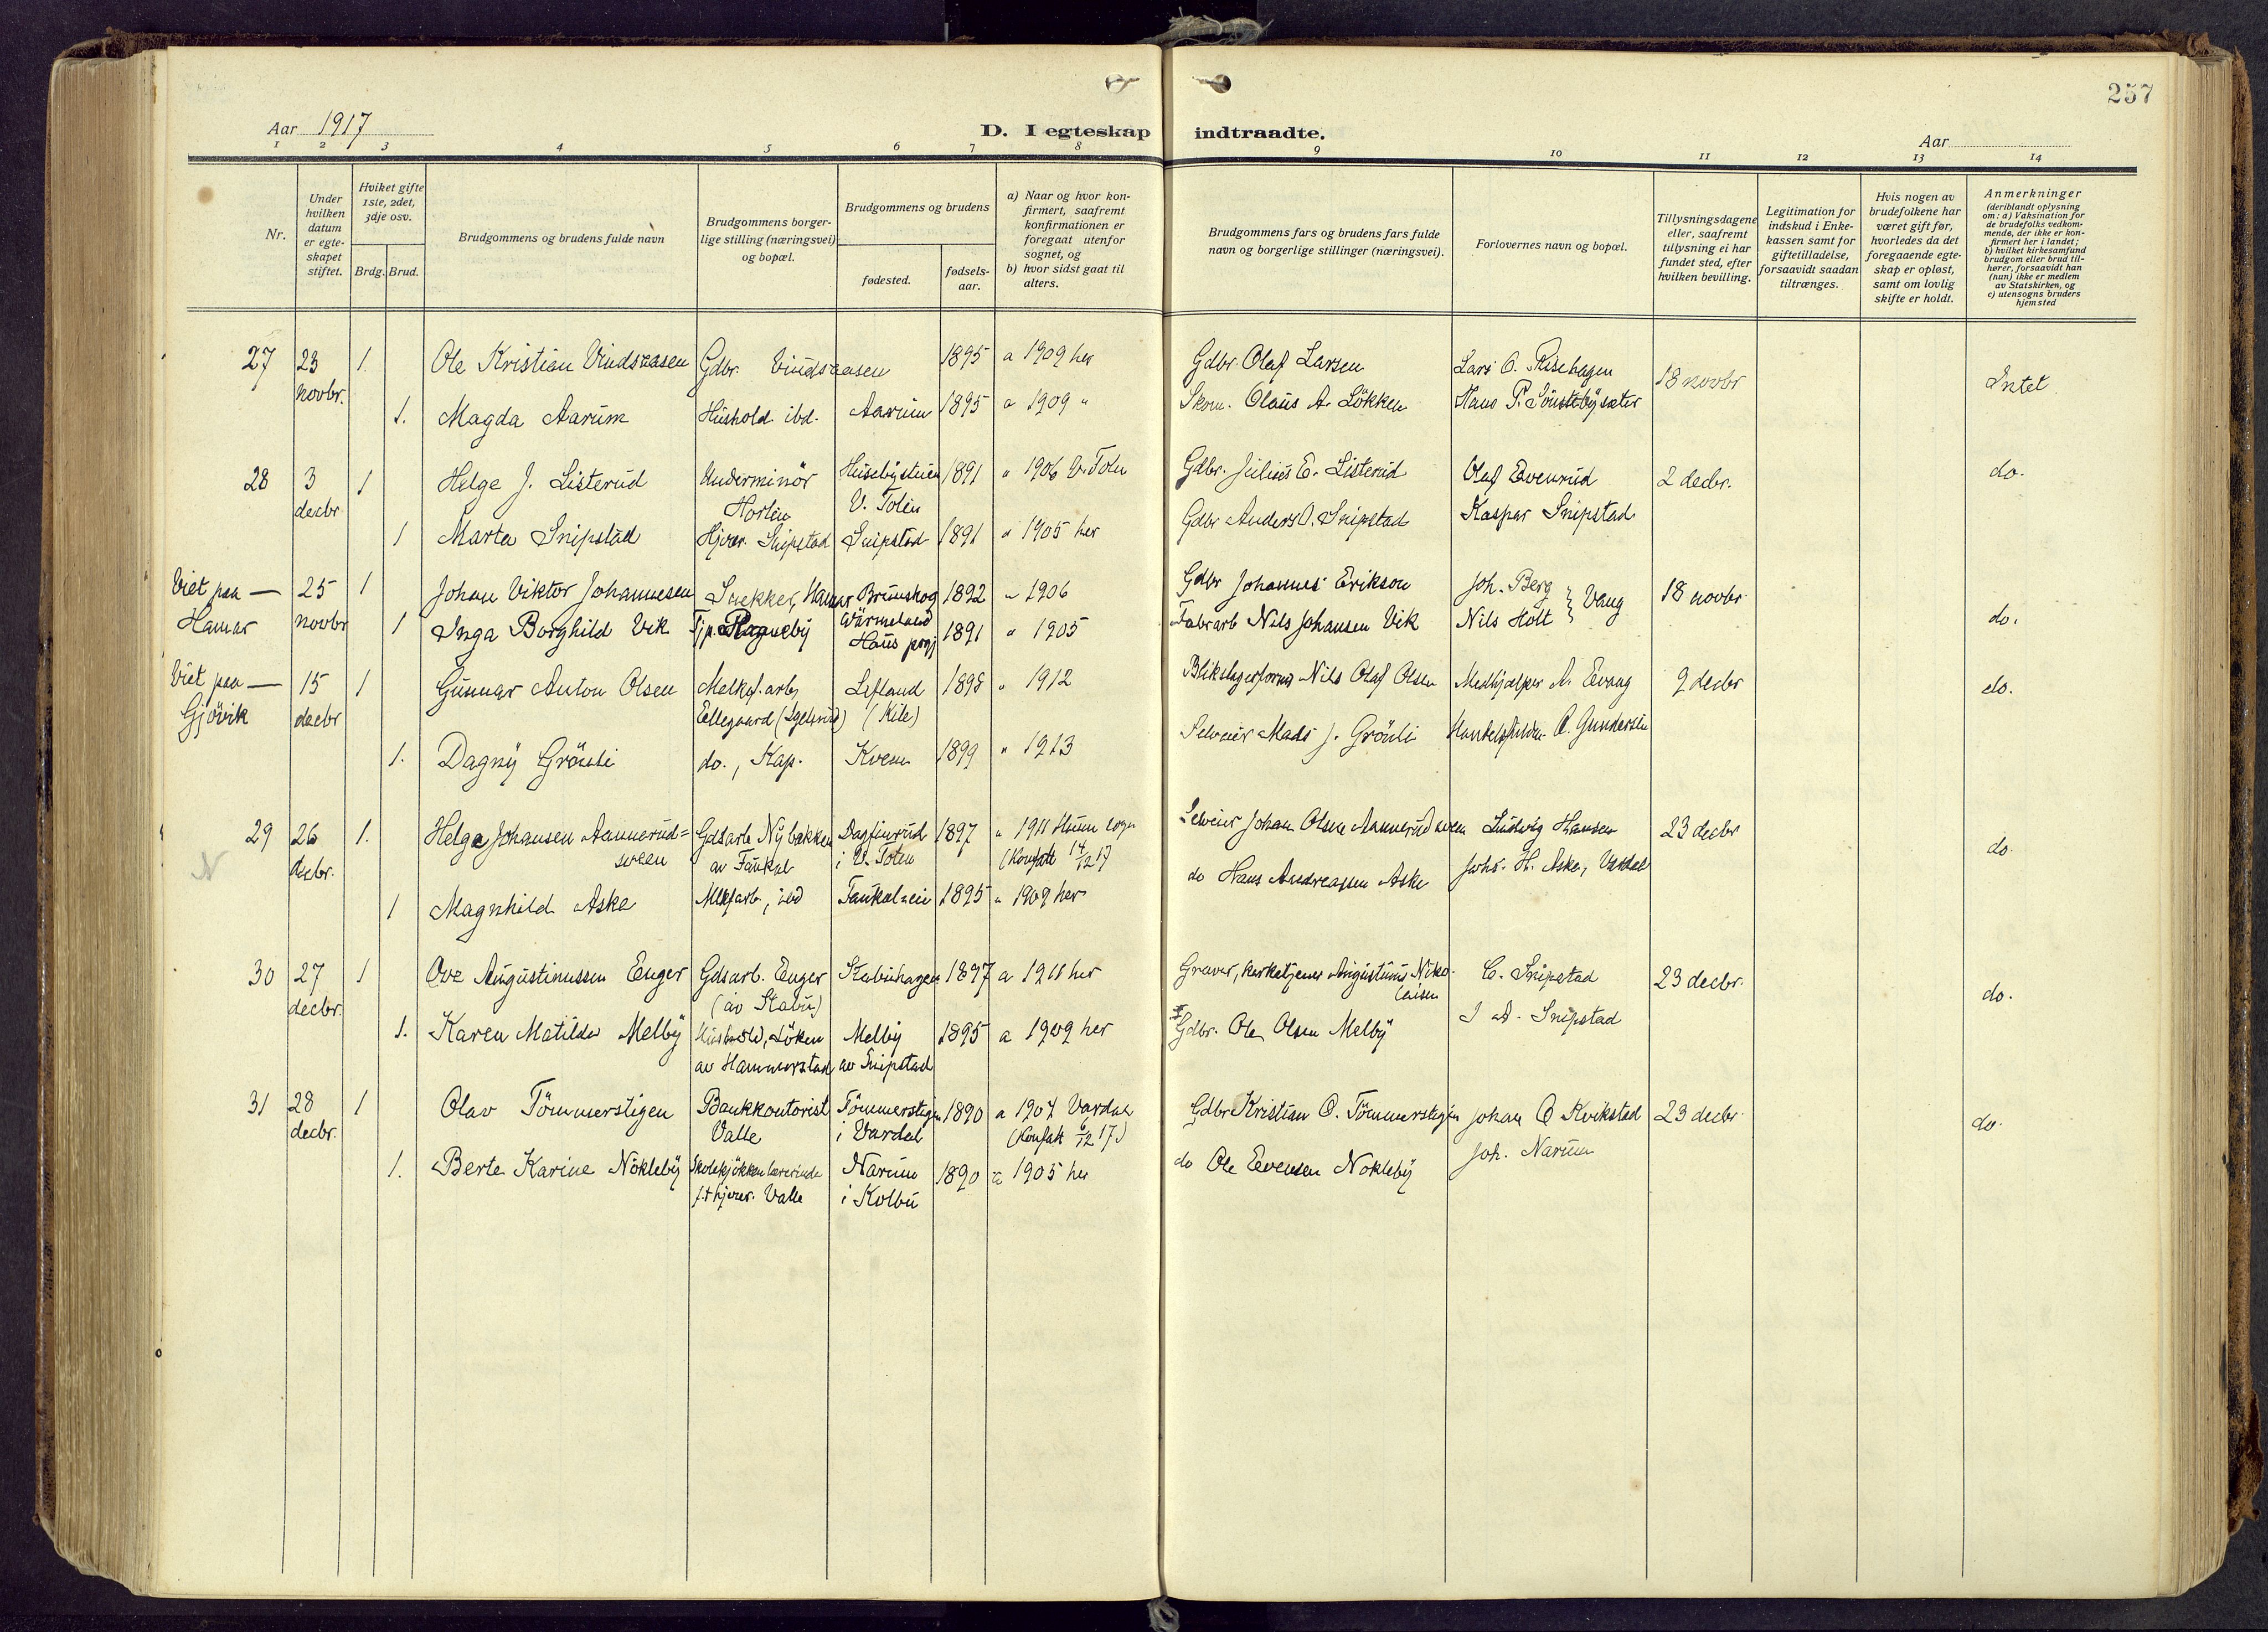 257
Aar 1917
D. I egteskap indtraadte.
Aar
1 2 3 4 5 6 7 8 9 10 11 12 13 14
Nr.
Under hvilken datum er egteskapet stiftet.
Hviket gifte 1ste, 2det, 3dje osv.
Brdg. Brud.
Brudgommens og brudens fulde navn
Brudgommens borgerlige stilling (næringsvei) og bopæl.
Brudgommens og brudens
fødested.
fødselsaar.
a) Naar og hvor konfirmert, saafremt konfirmationen er foregaat utenfor sognet, og
b) hvor sidst gaat til alters.
Brudgommens fars og brudens fars fulde navn og borgerlige stillinger (næringsvei).
Forlovernes navn og bopæl.
Tillysningsdagene eller, saafremt tillysning ei har fundet sted, efter hvilken bevilling.
Legitimation for indskud i Enkekassen samt for giftetilladelse, forsaavidt saadan tiltrænges.
Hvis nogen av brudefolkene har været gift før, hvorledes da det foregaaende egteskap er opløst, samt om lovlig skifte er holdt.
Anmerkninger
(deriblandt oplysning om: a) Vaksination for de brudefolks vedkommende, der ikke er konfirmert her i landet;
b) hvilket kirkesamfund brudgom eller brud tilhører, forsaavidt han (hun) ikke er medlem av Statskirken, og
c) utensogns bruders hjemsted
27 23 novbr. 1. Ole Kristian Vindsraasen Gdbr. Vindsraasen 1895 a 1909 her Gdbr. Olaf Larsen Lars O. Risehagen 18 novbr Intet
1. Magda Aarum Hushold. ibd. Aarum 1895 a 1909 " Skom. Olaus A. Lökken Hans P. Sönstebysæter
28 3 decbr 1 Helge J. Listerud Underminör Horten V. Toten 1891 " 1906 V. Toten Gdbr. Julius E. Listerud Olaf Evenrud 2 decbr. do.
1 Marta Snipstad Hjver. Snipstad Snipstad 1891 " 1905 her Gdbr Anders O. Snipstad Kaspar Snipstad
Viet paa — Hamar 25 novbr 1 Johan Viktor Johannesen Snekker, Hamar Brunskog Wärmeland 1892 " 1906 Gdbr Johannes Erikson Joh. Berg } Vang 18 novbr do.
1 Inga Borghild Vik Tjp. Ragneby Haus prgj 1891 " 1905 Fabrarb Nils Johansen Vik Nils Holt
Viet paa — Gjövik 15 decbr 1 Gunnar Anton Olsen Melkef. arb Eellegaard Lifland (Kile) 1898 " 1912 Nils Olaf Olsen Medhjælper A. Evang 9 decbr do.
1. Dagny Grönli do., Kap. Kvem 1899 " 1913 Selveier Mads J. Grönli O. Gundersen
29 26 decbr. 1. Helge Johansen Aannerudsveen Gdsarb Nybakken av Faukal Dagfinrud i V. Toten 1897 " 1911 Hunn sogn (Konfatt 14/12 17) Selveier Johan Olsen Aannerudsveen Ludvig Hansen 23 decbr do.
1 Magnhild Aske Mlkfarb, ibd Faukaleie 1895 " 1909 her do Hans Andreassen Aske Johs. H. Aske, Vardal
30 27 decbr. 1 Ove Augustinussen Enger Gdsarb. Enger (av Stabu) Stabuhagen 1897 a 1911 her Graver, kirketjener Augustinus Nikolaisen C. Snipstad 23 decbr. do.
1. Karen Matilde Melby Hushold, Löken av Hammerstad Melby av Snipstad 1895 a 1909 her Gdbr. Ole Olsen Melby J A. Snipstad
31 28 decbr. 1 Olav Tömmerstigen Bankkontorist Valle Tömmerstigen i Vardal 1890 a 1904 Vardal (Konfatt 6/12 17.) Gdbr Kristian O. Tömmerstigen Johan O Kvikstad 23 decbr. do.
1. Berte Karine Nökleby Skolekjökkenlærerinde f.t hjver. Valle Narum i Kolbu 1890 a 1905 her do Ole Evensen Nökleby Joh. Narum